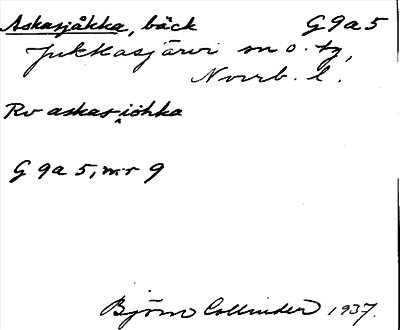 Askasjåkka, bäck G 9a 5
Jukkasjärvi sn o. tg,
Norrb. l.
Rv askas‸iöhka
G 9a 5, nr 9
Björn Collinder 1937.